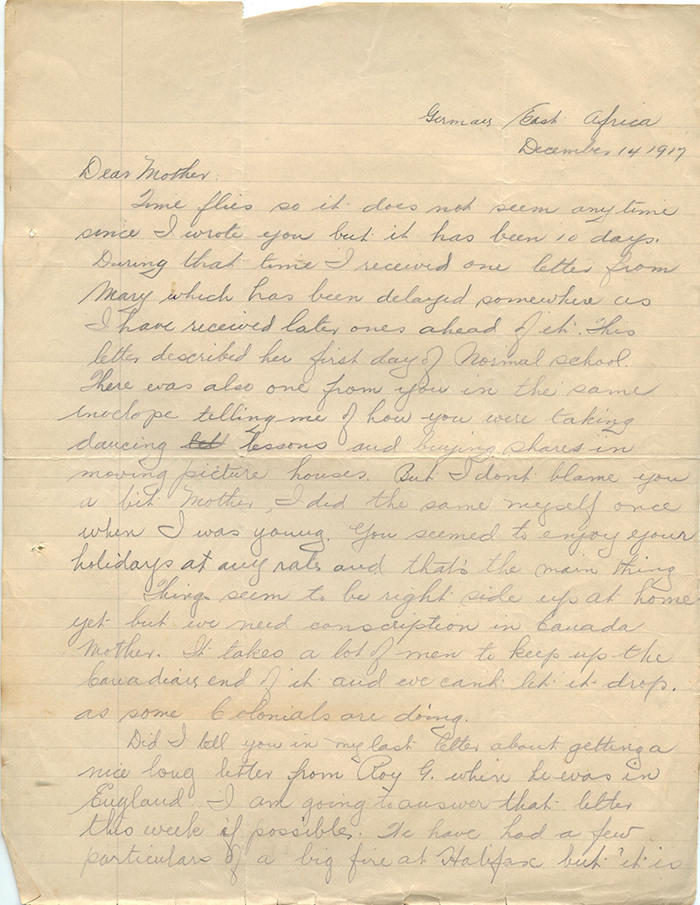 German East Africa
December 14 1917
Dear Mother.
Time flies so it does not seem any time
since I wrote you but it has been 10 days.
During that time I received one letter from
Mary which has been delayed somewhere as
I have received later ones ahead of it. This
letter described her first day of Normal school.
There was also one from you in the same
envelope telling me of how you were taking
dancing let lessons and buying shares in
moving picture houses. But I dont blame you
a bit Mother, I did the same myself once
when I was young. You seemed to enjoy your
holidays at any rate and that's the main thing
Things seem to be right side up at home
yet but we need conscription in Canada
Mother. It takes a lot of men to keep up the
Canadian end of it and we cant let it drop.
as some Colonials are doing.
Did I tell you in my last letter about getting a
nice long letter from Roy G. when he was in
England I am going to answer that letter
this week if possible. We have had a few
particulars of a big fire at Halifax but it is